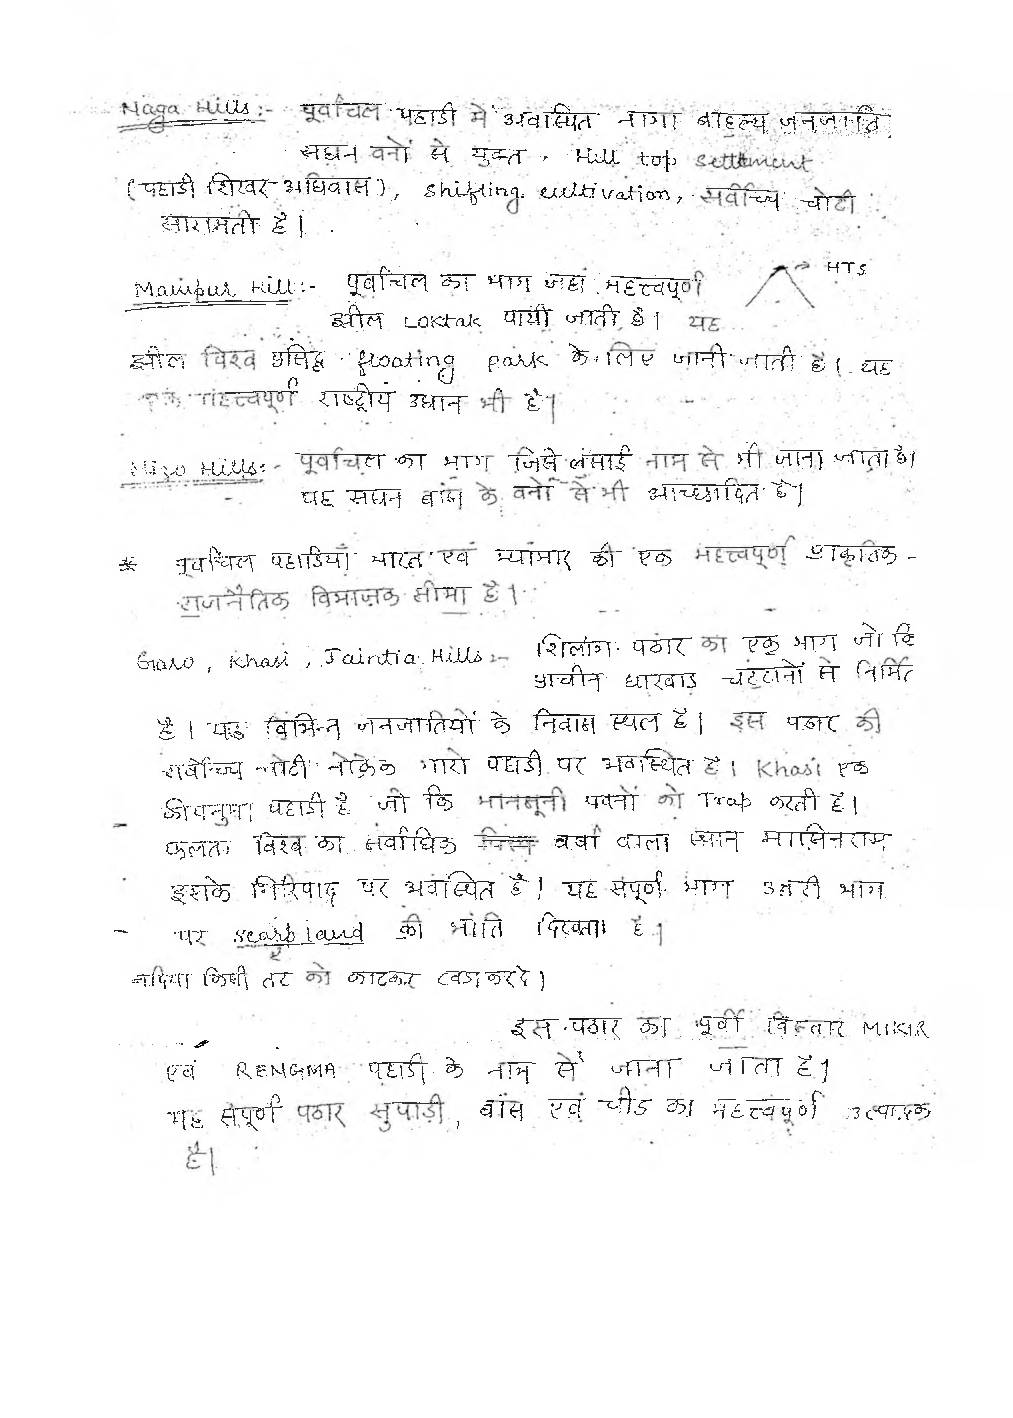 Naga Hills :- पूर्वांचल पहाडी में अवस्थित नागा बाहुल्य जनजाति
सघन वनों से युक्त, Hill top settlement
(पहाडी शिखर अधिवास), shifting cultivation, सर्वोच्च चोटी
सारामती है।
Manipur Hill :- पूर्वांचल का भाग जहां महत्त्वपूर्ण
HTS
झील LOKTAK पायी जाती है। यह
झील विश्व प्रसिद्ध floating park के लिए जानी जाती है। यह
एक महत्त्वपूर्ण राष्ट्रीय उद्यान भी है।
Mizo Hills :- पूर्वांचल का भाग जिसे लुसाई नाम से भी जाना जाता है।
यह सघन बांस के वनों से भी आच्छादित है।
* पूर्वांचल पहाडियाँ भारत एवं म्यांमार की एक महत्त्वपूर्ण प्राकृतिक -
राजनैतिक विभाजक सीमा है।
Garo, Khasi, Jaintia Hills :- शिलांग पठार का एक भाग जो कि
प्राचीन धारवाड चट्टानों से निर्मित
है। यह विभिन्न जनजातियों के निवास स्थल है। इस पठार की
सर्वोच्च चोटी नोक्रेक गारो पहाडी पर अवस्थित है। Khasi एक
कीपनुमा पहाडी है जो कि मानसूनी पवनों को Trap करती है।
फलतः विश्व का सर्वाधिक वर्षा वाला स्थान मासिनराम
इसके गिरिपाद पर अवस्थित है। यह संपूर्ण भाग उत्तरी भाग
पर scarpland की भांति दिखता है।
नदिया किसी तट को काटकर खडा कर दे)
इस पठार का पूर्वी विस्तार MIKIR
एवं RENGMA पहाडी के नाम से जाना जाता है।
यह संपूर्ण पठार सुपाडी, बांस एवं चीड का महत्त्वपूर्ण उत्पादक
है।